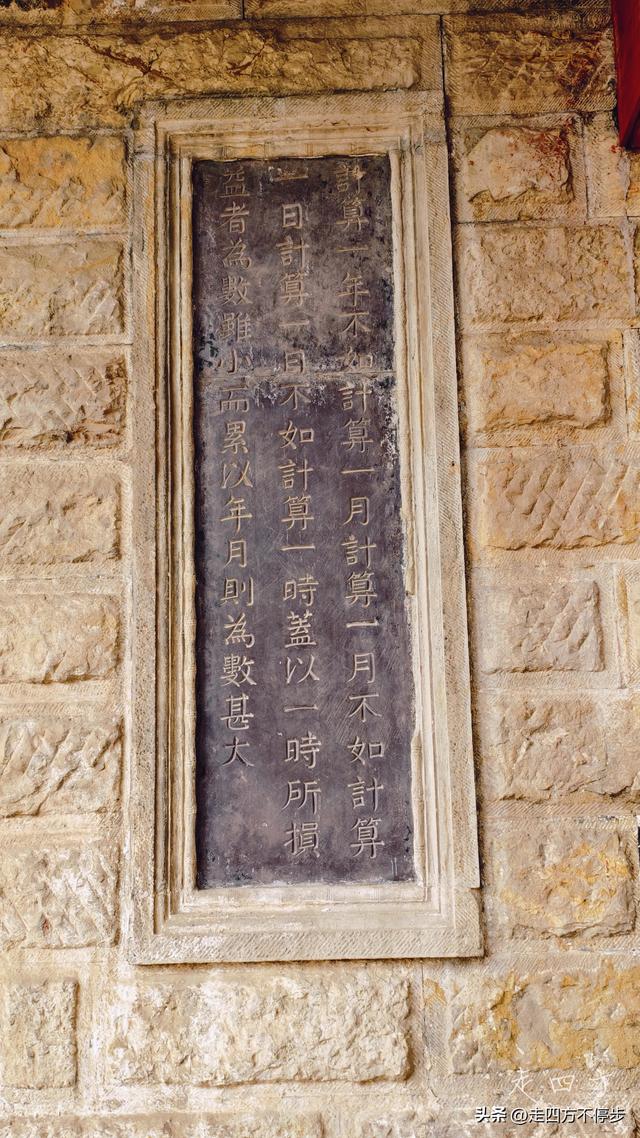 計算一年不如計算一月計算一月不如計算
一日計算一日不如計算一時蓋以一時所損
益者為數雖小而累以年月則為數甚大
走四方
头条 @走四方不停步